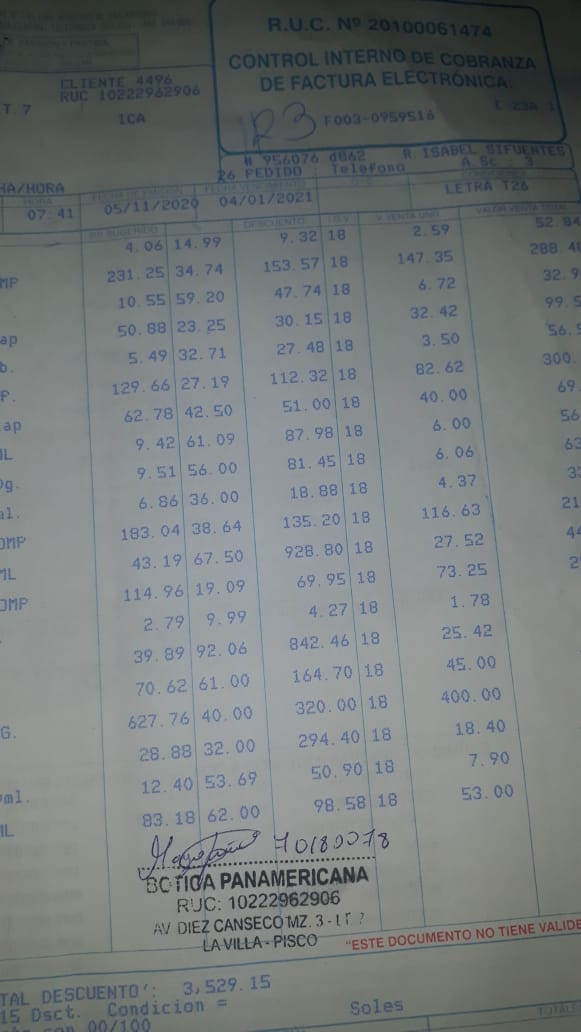 R.U.C. Nº 20100061474
CONTROL INTERNO DE COBRANZA
DE FACTURA ELECTRÓNICA:
CLIENTE 4496
RUC 10222962906
T. 7
1CA
1R3 F003-0959516 I 23A 1
# 956076 d062 R. ISABEL SIFUENTES
26 PEDIDO Telefono A.Sc : 3
HA/HORA
HORA FECHA DE EMISIÓN FECHA VENCIMIENTO
LETRA T26
07:41 05/11/2020 04/01/2021
PR SUGERIDO % DESCUENTO I.G.V. V. VENTA UNIT. VALOR VENTA TOTAL
4.06 14.99 9.32 18 2.59 52.84
MP 231.25 34.74 153.57 18 147.35 288.4
10.55 59.20 47.74 18 6.72 32.9
ap 50.88 23.25 30.15 18 32.42 99.5
b. 5.49 32.71 27.48 18 3.50 56.5
P. 129.66 27.19 112.32 18 82.62 300.
ap 62.78 42.50 51.00 18 40.00 69
ML 9.42 61.09 87.98 18 6.00 56
g. 9.51 56.00 81.45 18 6.06 63
al. 6.86 36.00 18.88 18 4.37 3
OMP 183.04 38.64 135.20 18 116.63 21
ML 43.19 67.50 928.80 18 27.52 44
OMP 114.96 19.09 69.95 18 73.25 2
2.79 9.99 4.27 18 1.78
39.89 92.06 842.46 18 25.42
70.62 61.00 164.70 18 45.00
G. 627.76 40.00 320.00 18 400.00
28.88 32.00 294.40 18 18.40
ml. 12.40 53.69 50.90 18 7.90
IL 83.18 62.00 98.58 18 53.00
70180078
BOTICA PANAMERICANA
RUC: 10222962906
AV DIEZ CANSECO MZ. 3 - LT. 7
LA VILLA - PISCO
"ESTE DOCUMENTO NO TIENE VALIDE
TAL DESCUENTO': 3,529.15
15 Dsct. Condicion =
con 00/100 Soles
TOTALE